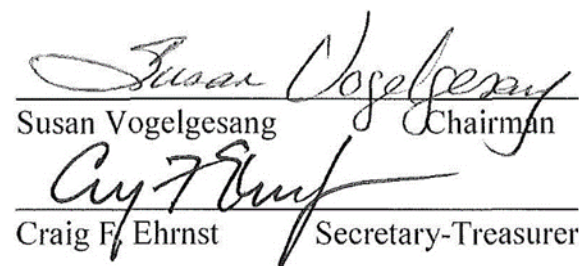 Susan Vogelgesang
Susan Vogelgesang Chairman
Craig F Ehrnst
Craig F. Ehrnst Secretary-Treasurer